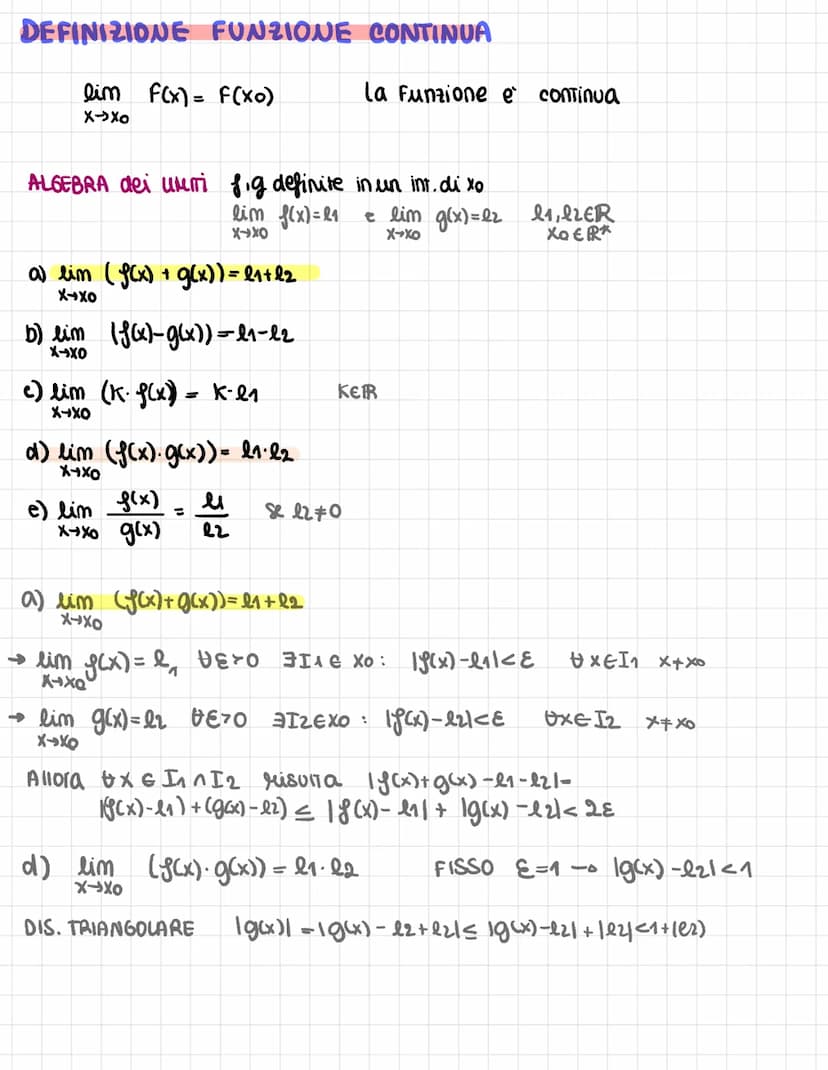 DEFINIZIONE FUNZIONE CONTINUA
lim f(x) = f(x0) la funzione e' continua
x→x0
ALGEBRA dei limiti f,g definite in un int. di x0
lim f(x)=l1 e lim g(x)=l2 l1,l2∈R
x→x0 x→x0 x0∈R*
a) lim (f(x) + g(x)) = l1+l2
x→x0
b) lim (f(x)-g(x)) = l1-l2
x→x0
c) lim (K·f(x)) = K·l1 K∈R
x→x0
d) lim (f(x)·g(x)) = l1·l2
x→x0
e) lim f(x)/g(x) = l1/l2 se l2≠0
x→x0
a) lim (f(x)+g(x)) = l1+l2
x→x0
→ lim f(x) = l1 ∀ε>0 ∃I1∈x0: |f(x)-l1|<ε ∀x∈I1 x≠x0
x→x0
→ lim g(x)=l2 ∀ε>0 ∃I2∈x0: |f(x)-l2|<ε ∀x∈I2 x≠x0
x→x0
Allora ∀x∈I1∩I2 risulta |f(x)+g(x)-l1-l2|=
|(f(x)-l1)+(g(x)-l2) ≤ |f(x)-l1| + |g(x)-l2|<2ε
d) lim (f(x)·g(x)) = l1·l2 FISSO ε=1 → |g(x)-l2|<1
x→x0
DIS. TRIANGOLARE |g(x)| = |g(x)-l2+l2|≤ |g(x)-l2|+|l2|<1+|l2)